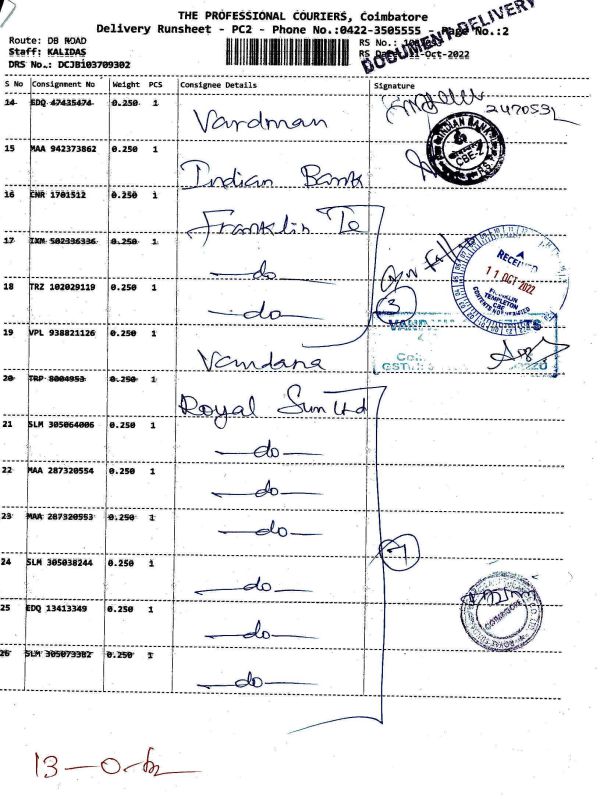 THE PROFESSIONAL COURIERS, Coimbatore
Delivery Runsheet - PC2 - Phone No.:0422-3505555 - Page No.:2
DOCUMENT DELIVERY
Route: DB ROAD RS No.:
Staff: KALIDAS RS Date: 11-Oct-2022
DRS No.: DCJBi03709302
S No Consignment No Weight PCS Consignee Details Signature
14 EDQ 47435474 0.250 1 Vardman 2470531
15 MAA 942373862 0.250 1 Indian Bank
INDIAN BANK
CBE-2
16 CNR 1701512 0.250 1 Franklin Te
17 IXM 502336336 0.250 1 do
18 TRZ 102029119 0.250 1 do
3
RECEIVED
11 OCT 2022
FRANKLIN
TEMPLETON
CBE
CONTENTS NOT VERIFIED
19 VPL 938821126 0.250 1 Vandana
20 TRP 8004953 0.250 1 Royal Sun Ltd
21 SLM 305064006 0.250 1 do
22 MAA 287320554 0.250 1 do
23 MAA 287320553 0.250 1 do
7
24 SLM 305038244 0.250 1 do
25 EDQ 13413349 0.250 1 do
COIMBATORE
26 SLM 305073382 0.250 1 do